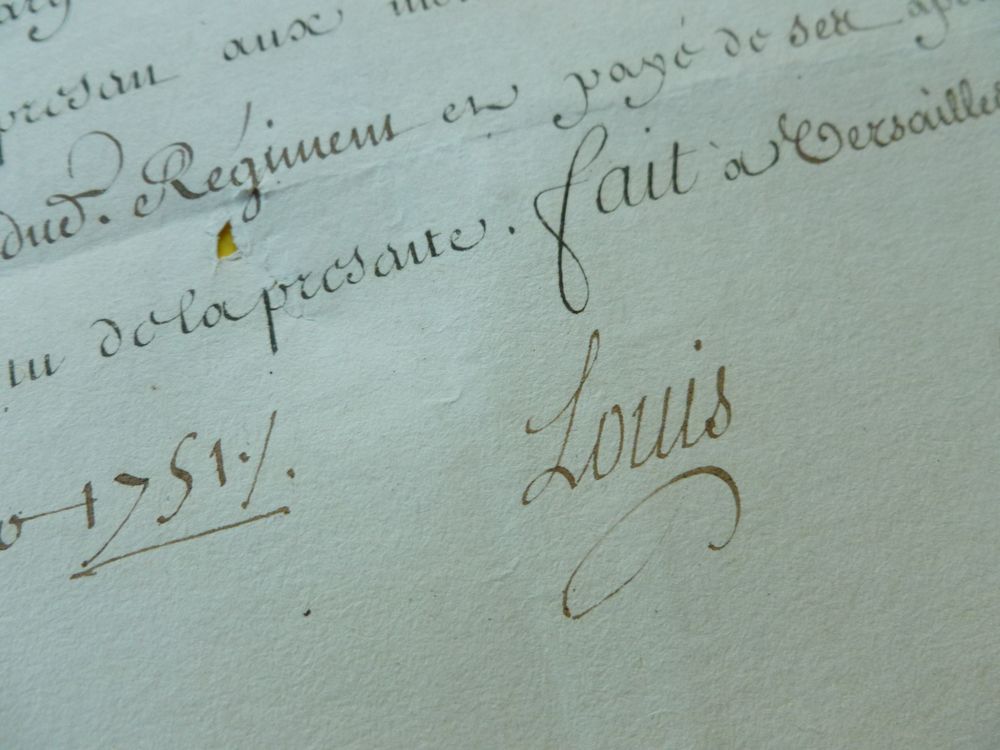 presan aux
dud. Regiment et payé de ses
de la presante. fait a Versailles
1751./.
Louis